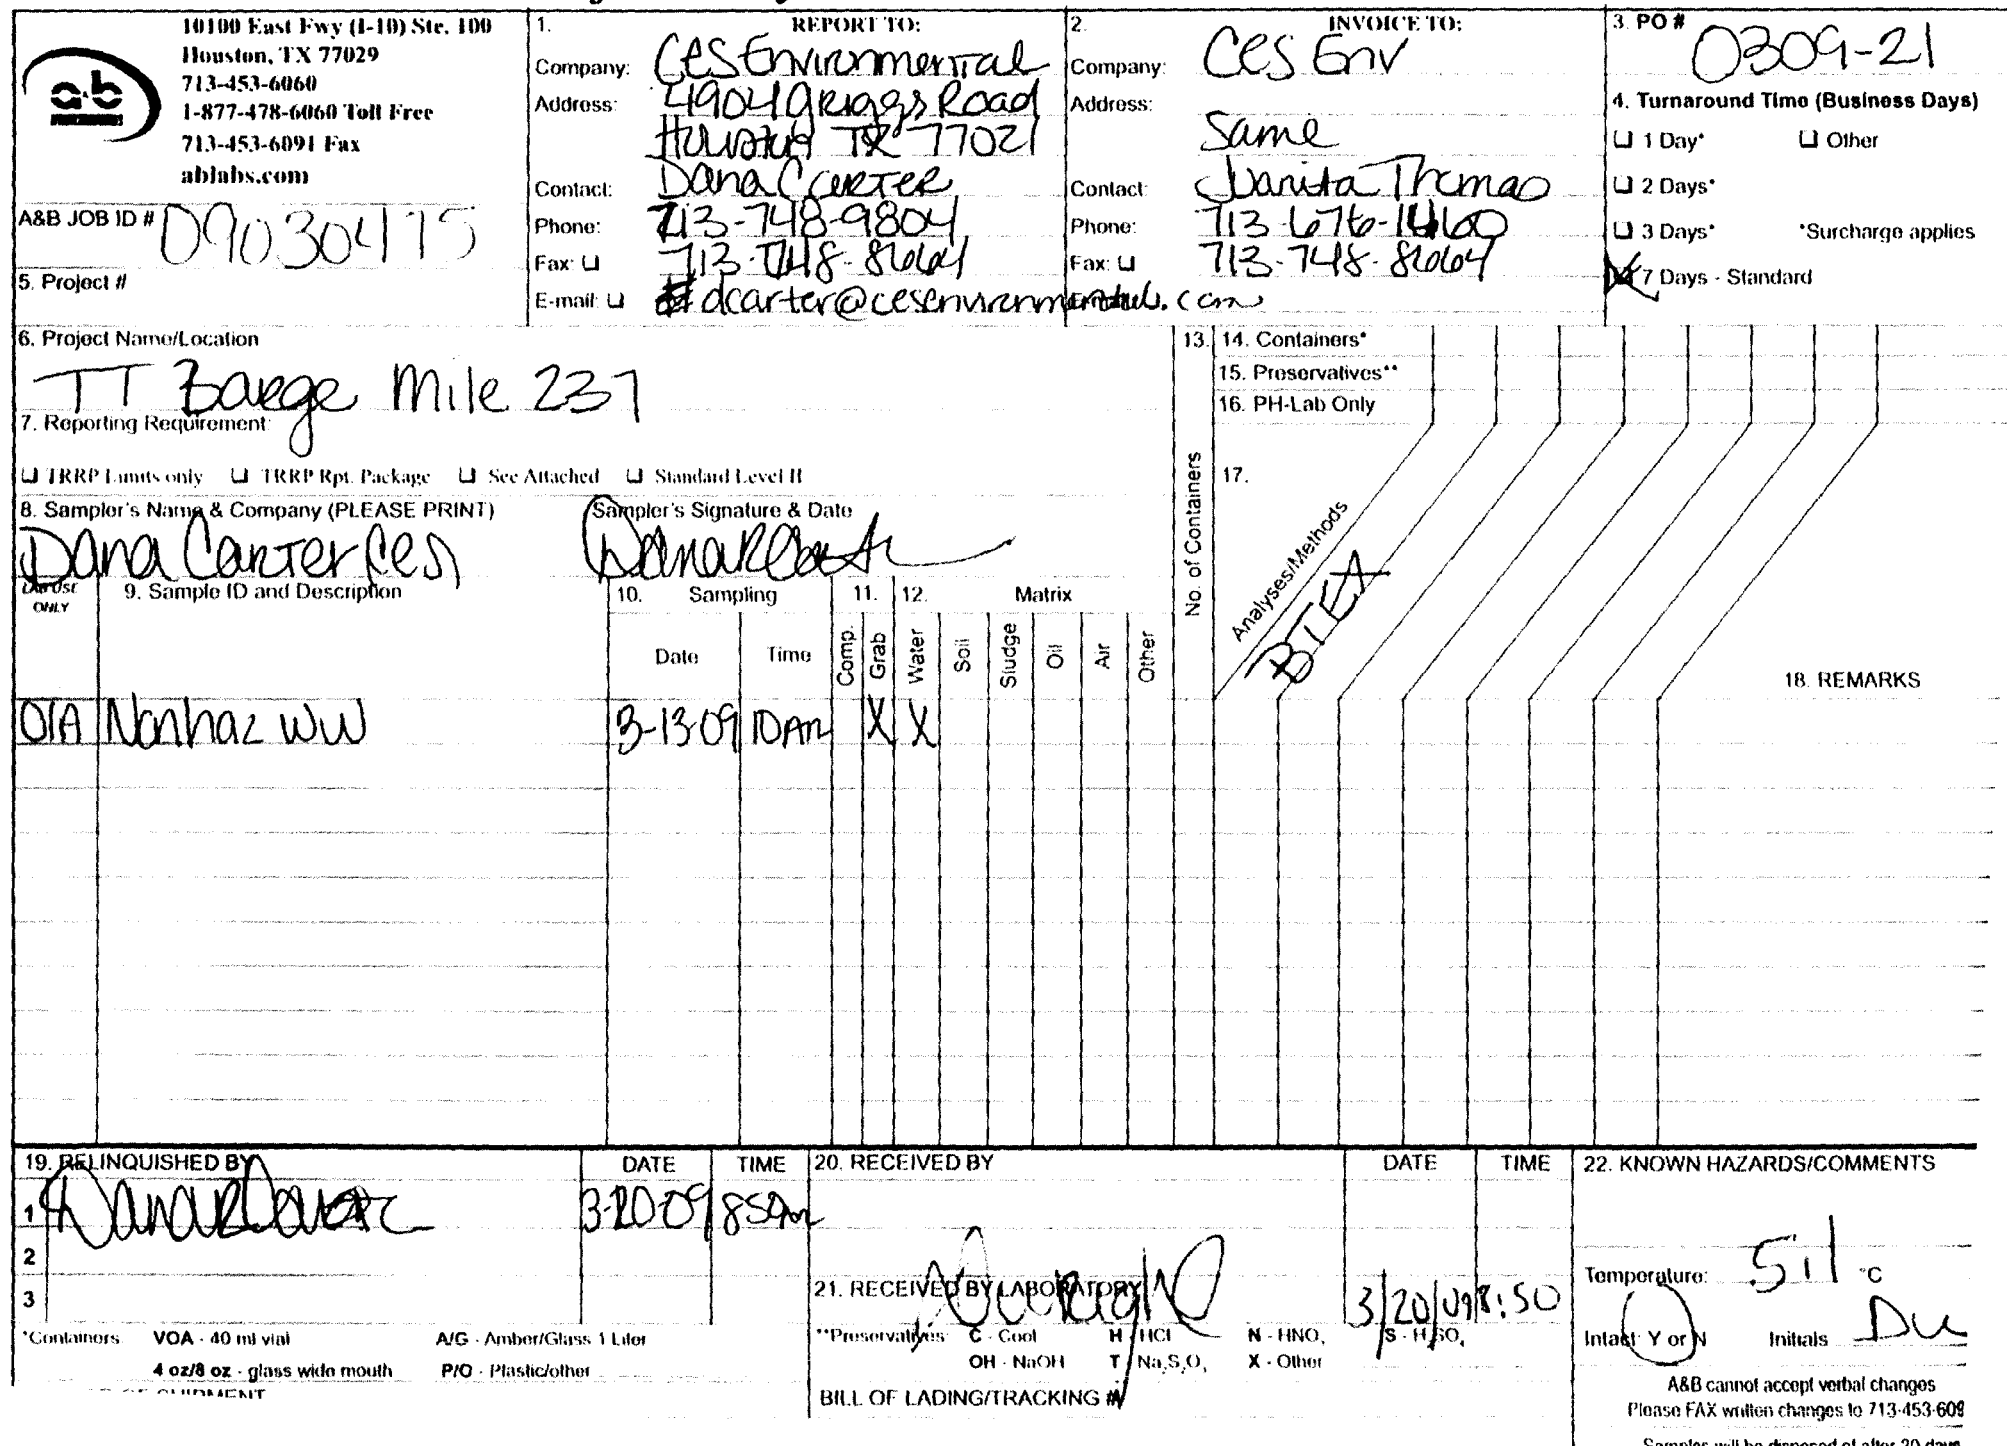 10100 East Fwy (I-10) Ste. 100
Houston, TX 77029
713-453-6060
1-877-478-6060 Toll Free
713-453-6091 Fax
ablabs.com
a&b
A&B JOB ID # 09030475
5. Project #
1. REPORT TO:
Company: CES Environmental
Address: 4904 Griggs Road
Houston TX 77021
Contact: Dana Carter
Phone: 713-748-9804
Fax: 713-748-8664
E-mail: dcarter@cesenvironmental.com
2. INVOICE TO:
Company: CES Env
Address:
Same
Contact: Juanita Thomas
Phone: 713-676-1460
Fax: 713-748-8664
3. PO #
0309-21
4. Turnaround Time (Business Days)
1 Day* Other
2 Days*
3 Days* *Surcharge applies
X 7 Days - Standard
6. Project Name/Location
TT Barge Mile 237
7. Reporting Requirement:
TRRP Limits only TRRP Rpt. Package See Attached Standard Level II
8. Sampler's Name & Company (PLEASE PRINT) Sampler's Signature & Date
Dana Carter CES
13. No. of Containers
14. Containers*
15. Preservatives**
16. PH-Lab Only
17.
Analyses/Methods
18. REMARKS
LAB USE ONLY
9. Sample ID and Description
10. Sampling 11. 12. Matrix
Date Time Comp. Grab Water Soil Sludge Oil Air Other
01A Nonhaz WW 3-13-09 10Am X X
19. RELINQUISHED BY DATE TIME 20. RECEIVED BY DATE TIME 22. KNOWN HAZARDS/COMMENTS
1 3-20-09 850Am
2
3
21. RECEIVED BY LABORATORY 3/20/09 8:50
Temperature: 5.1 °C
Intact: Y or N Initials
*Containers: VOA - 40 ml vial A/G - Amber/Glass 1 Liter
4 oz/8 oz - glass wide mouth P/O - Plastic/other
**Preservatives: C - Cool H - HCl N - HNO₃ S - H₂SO₄
OH - NaOH T - Na₂S₂O₃ X - Other
BILL OF LADING/TRACKING #
A&B cannot accept verbal changes
Please FAX written changes to 713-453-609